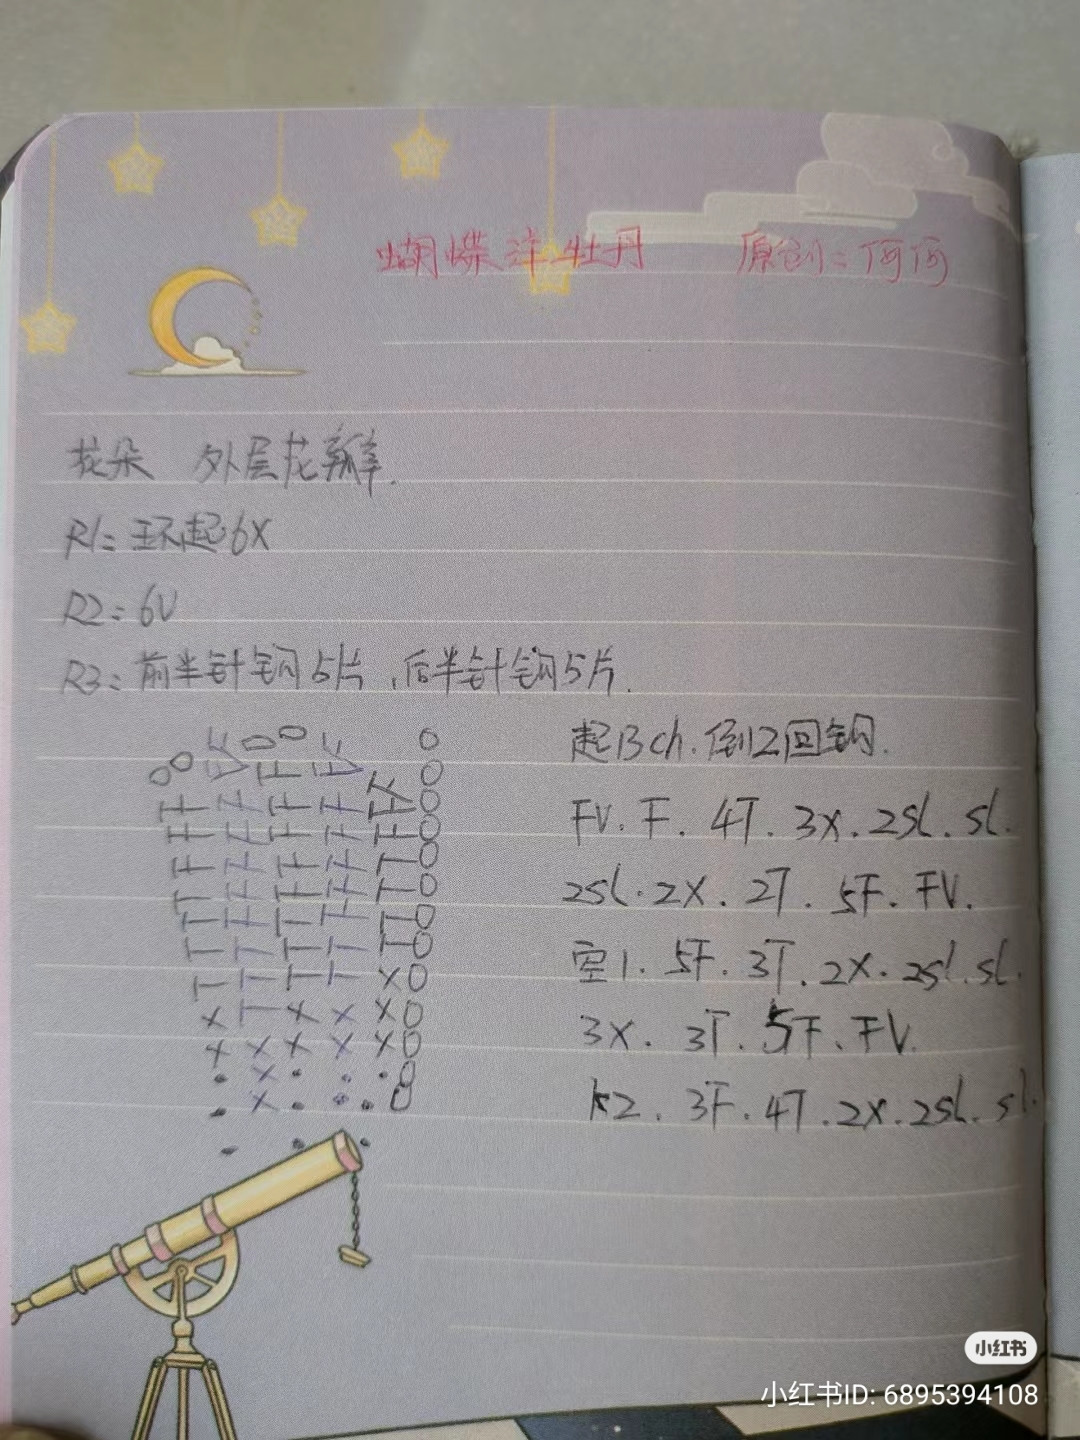 蝴蝶洋牡丹 原创:何何
花朵 外层花瓣.
R1:环起6X
R2:6V
R3:前半针钩5片,后半针钩5片.
起13ch.倒2回钩.
FV.F.4T.3X.2sl.sl.
2sl.2X.2T.5F.FV.
空1.5F.3T.2X.2sl.sl.
3X.3T.5F.FV.
k2.3F.4T.2X.2sl.sl.
小红书
小红书ID: 6895394108